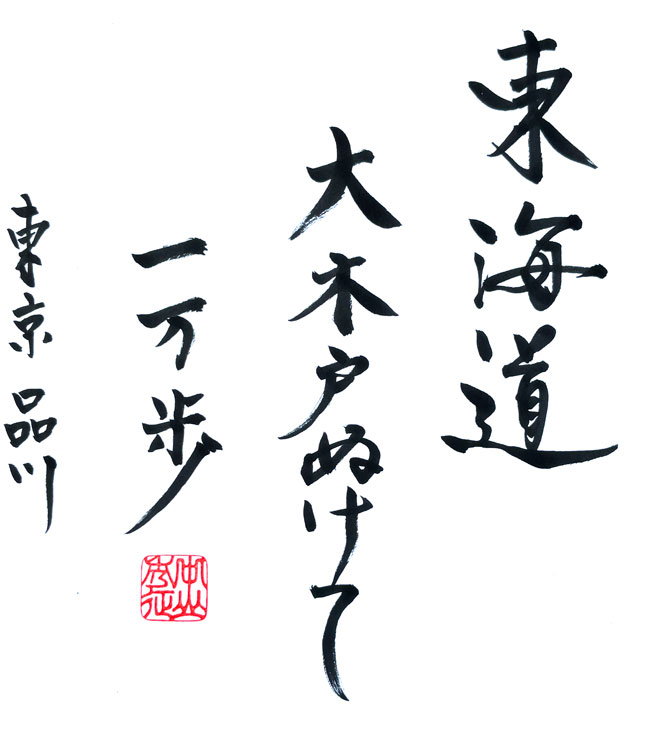 東海道
大木戸ぬけて
一万歩
東京 品川